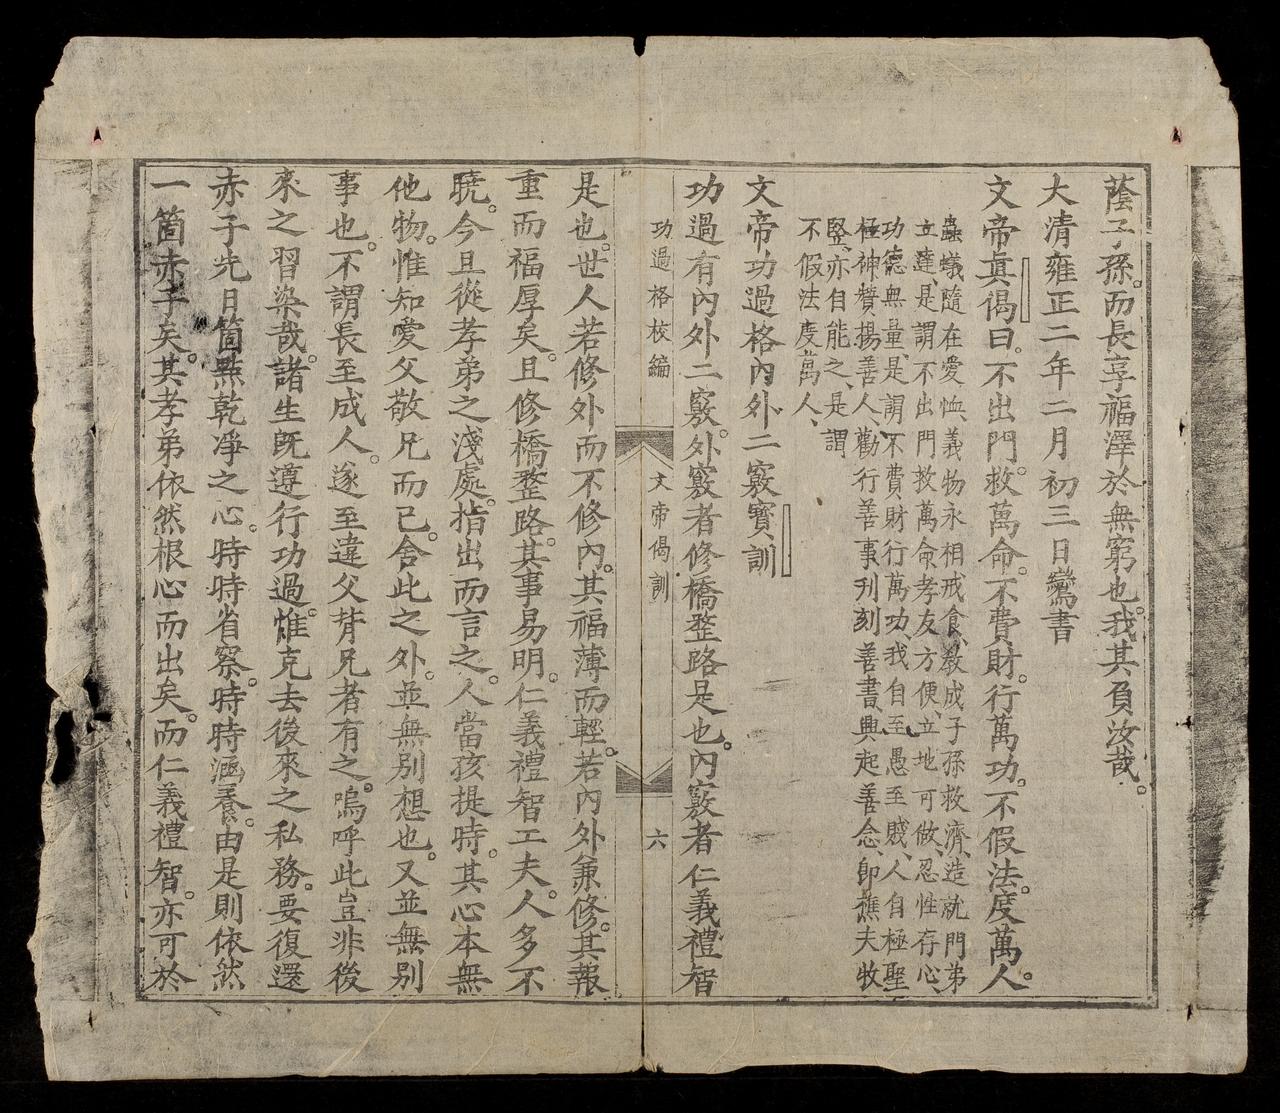 蔭子孫。而長享福澤於無窮也。我其負汝哉。
大清雍正二年二月初三日鸞書
文帝眞偈曰。不出門。救萬命。不費財。行萬功。不假法。度萬人。
蟲蟻隨在愛恤、義物永相戒食、教成子孫救濟、造就門弟
立達、是謂不出門救萬命、孝友方便、立地可做、忍性存心、
功德無量、是謂不費財行萬功、我自至愚至賤、人自極聖
極神、贊揚善人、勸行善事、刋刻善書、興起善念、即樵夫牧
豎、亦自能之、是謂
不假法度萬人、
文帝功過格內外二竅寶訓
功過有內外二竅。外竅者修橋整路是也。內竅者仁義禮智
功過格校編
文帝偈訓
六
是也。世人若修外而不修內。其福薄而輕。若內外兼修。其報
重而福厚矣。且修橋整路。其事易明。仁義禮智工夫。人多不
曉。今且從孝弟之淺處。指出而言之。人當孩提時。其心本無
他物。惟知愛父敬兄而已。舍此之外。並無別想也。又並無別
事也。不謂長至成人。遂至違父背兄者有之。嗚呼此豈非後
來之習染哉。諸生旣遵行功過。惟克去後來之私務。要復還
赤子先日箇點乾凈之心。時時省察。時時涵養。由是則依然
一箇赤子矣。其孝弟依然根心而出矣。而仁義禮智。亦可於